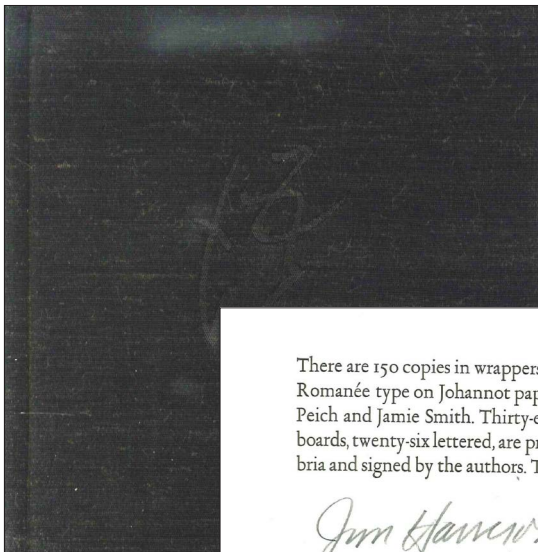 There are 150 copies in wrappers
Romanée type on Johannot pap
Peich and Jamie Smith. Thirty-e
boards, twenty-six lettered, are pr
bria and signed by the authors. T
Jim Harrison